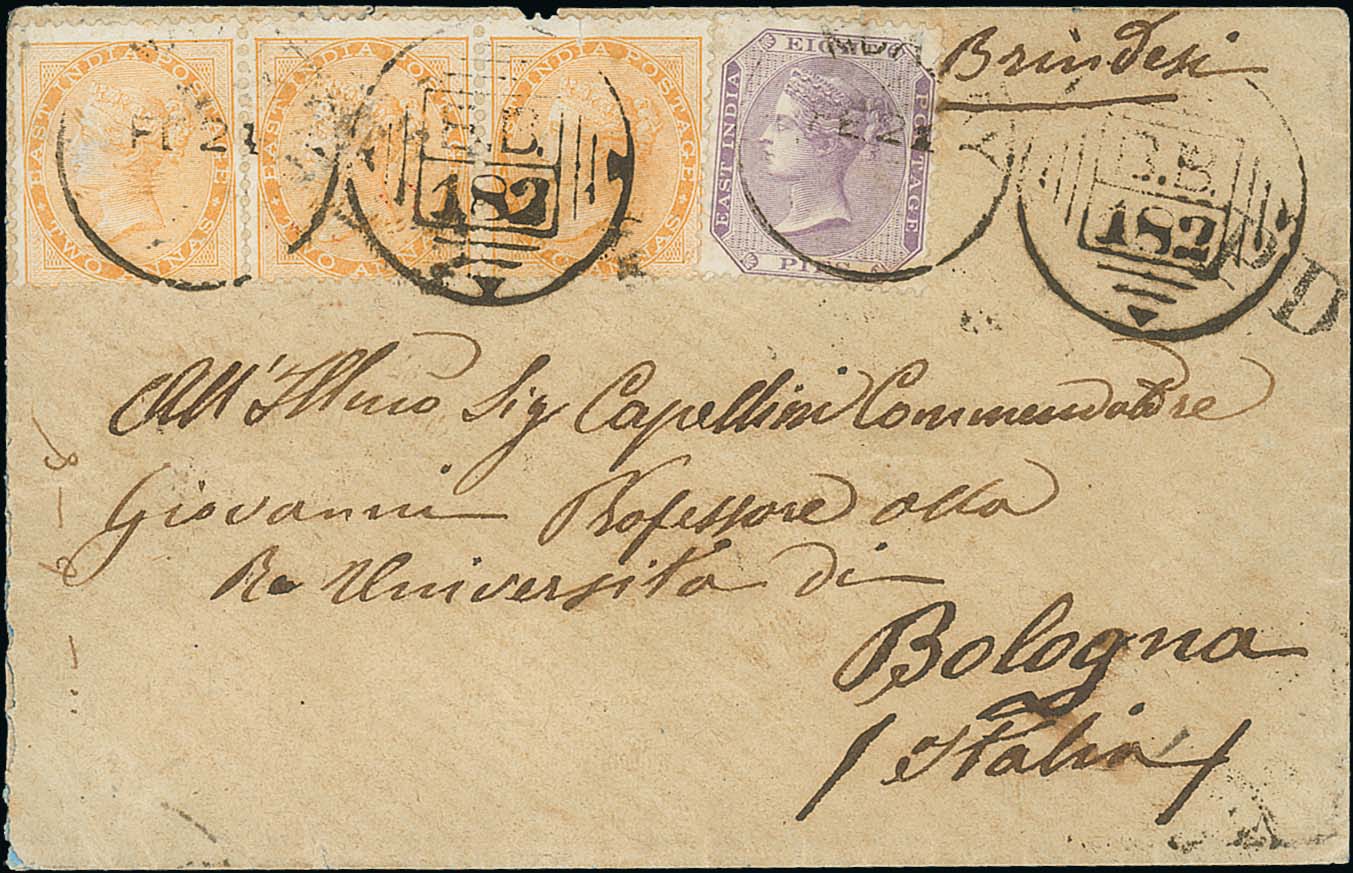 EAST INDIA POSTAGE
TWO ANNAS
EAST INDIA POSTAGE
TWO ANNAS
EAST INDIA POSTAGE
TWO ANNAS
EIGHT
EAST INDIA
POSTAGE
PIES
FE 21
B.B.
182
FE 21
B.B.
182
PD
Brindesi
All' Illmo Sig Capellini Commendatore
Giovanni Professore alla
Ra Universita di
Bologna
/ Italia /